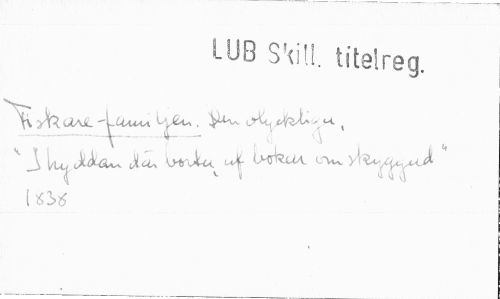 LUB Skill. titelreg.
Fiskare-familjen. Den olyckliga,
"I hyddan där borta, af boken omskyggd"
1838